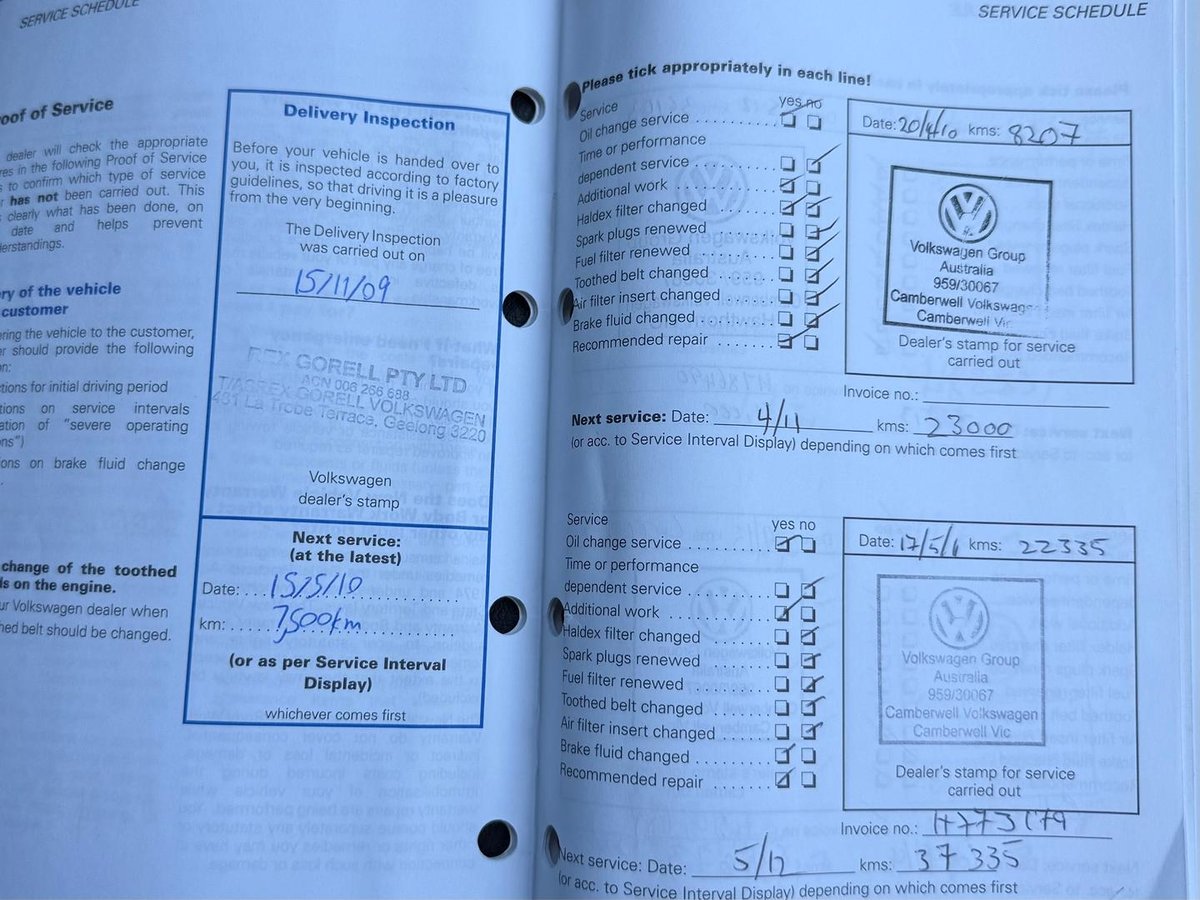 SERVICE SCHEDULE
oof of Service
dealer will check the appropriate
res in the following Proof of Service
to confirm which type of service
has not been carried out. This
clearly what has been done, on
date and helps prevent
erstandings.
ry of the vehicle
customer
ering the vehicle to the customer,
er should provide the following
n:
tions for initial driving period
tions on service intervals
ation of "severe operating
ons")
ons on brake fluid change
change of the toothed
ls on the engine.
ur Volkswagen dealer when
hed belt should be changed.
Delivery Inspection
Before your vehicle is handed over to
you, it is inspected according to factory
guidelines, so that driving it is a pleasure
from the very beginning.
The Delivery Inspection
was carried out on
15/11/09
REX GORELL PTY LTD
ACN 006 266 688
T/AS REX GORELL VOLKSWAGEN
431 La Trobe Terrace, Geelong 3220
Volkswagen
dealer's stamp
Next service:
(at the latest)
Date: 15/5/10
km: 7,500km
(or as per Service Interval
Display)
whichever comes first
SERVICE SCHEDULE
Please tick appropriately in each line!
Service yes no
Oil change service
Time or performance
dependent service
Additional work
Haldex filter changed
Spark plugs renewed
Fuel filter renewed
Toothed belt changed
Air filter insert changed
Brake fluid changed
Recommended repair
Date: 20/4/10 kms: 8207
Volkswagen Group
Australia
959/30067
Camberwell Volkswagen
Camberwell Vic
Dealer's stamp for service
carried out
Invoice no.:
Next service: Date: 4/11 kms: 23000
(or acc. to Service Interval Display) depending on which comes first
Service yes no
Oil change service
Time or performance
dependent service
Additional work
Haldex filter changed
Spark plugs renewed
Fuel filter renewed
Toothed belt changed
Air filter insert changed
Brake fluid changed
Recommended repair
Date: 17/5/1 kms: 22335
Volkswagen Group
Australia
959/30067
Camberwell Volkswagen
Camberwell Vic
Dealer's stamp for service
carried out
Invoice no.:
Next service: Date: 5/12 kms: 37335
(or acc. to Service Interval Display) depending on which comes first